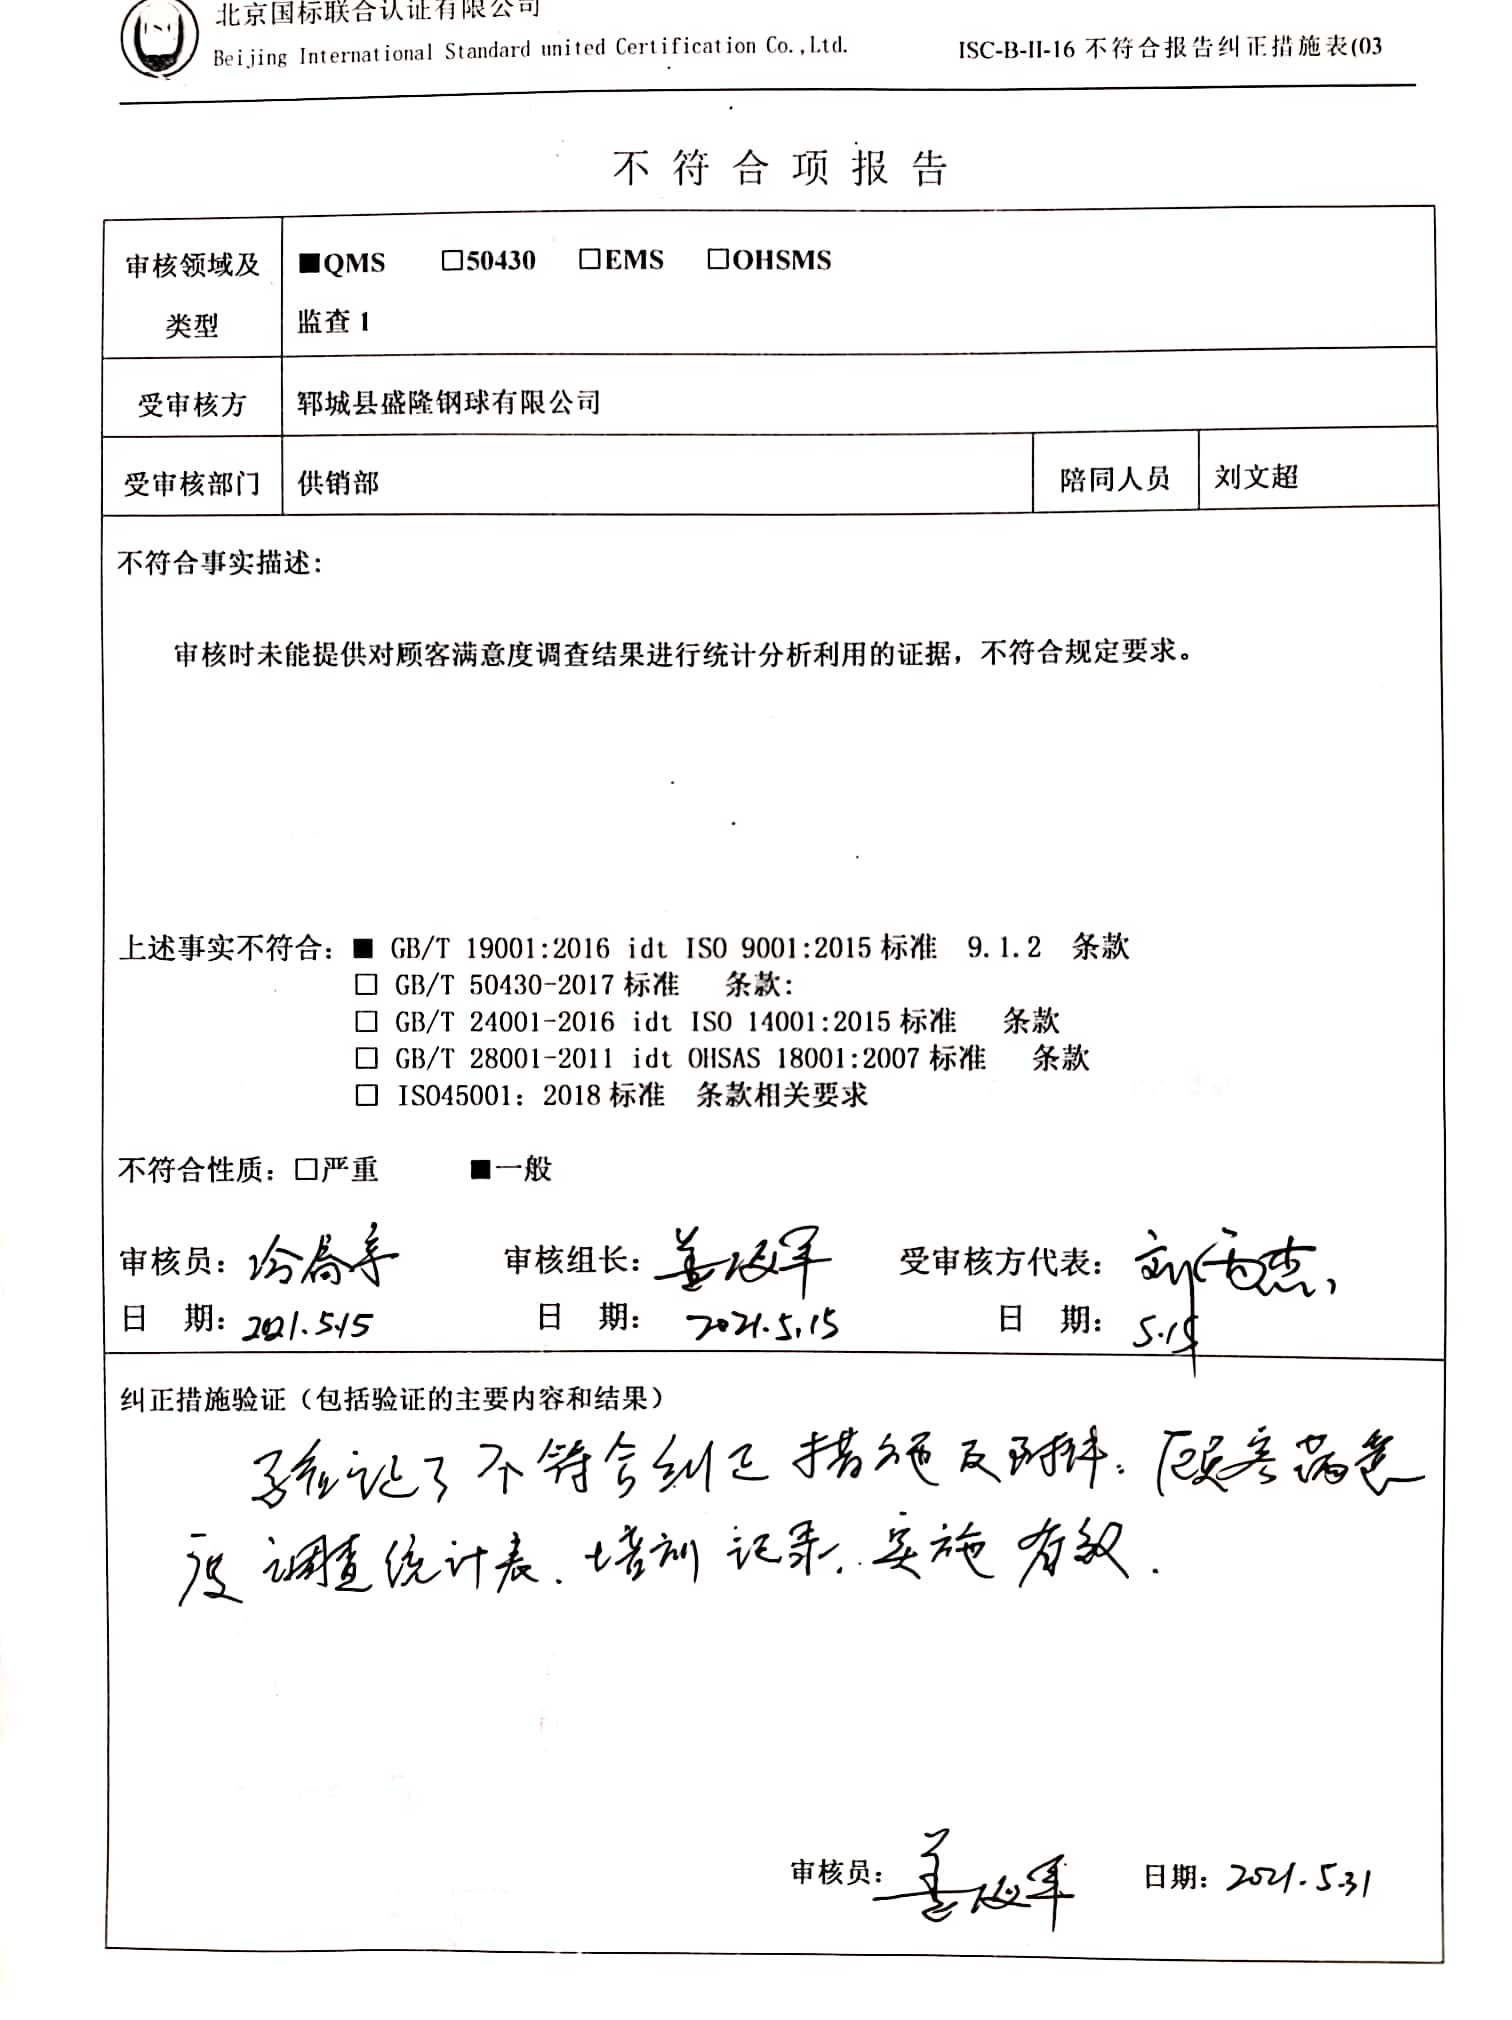 北京国标联合认证有限公司
Beijing International Standard united Certification Co.,Ltd.
ISC-B-II-16 不符合报告纠正措施表(03
不符合项报告
审核领域及类型
■QMS □50430 □EMS □OHSMS
监查 1
受审核方 郓城县盛隆钢球有限公司
受审核部门 供销部 陪同人员 刘文超
不符合事实描述:
审核时未能提供对顾客满意度调查结果进行统计分析利用的证据，不符合规定要求。
上述事实不符合: ■ GB/T 19001:2016 idt ISO 9001:2015 标准 9.1.2 条款
□ GB/T 50430-2017 标准 条款:
□ GB/T 24001-2016 idt ISO 14001:2015 标准 条款
□ GB/T 28001-2011 idt OHSAS 18001:2007 标准 条款
□ ISO45001: 2018 标准 条款相关要求
不符合性质: □严重 ■一般
审核员: 审核组长: 受审核方代表:
日 期: 2021.5.15 日 期: 2021.5.15 日 期: 5.15
纠正措施验证（包括验证的主要内容和结果）
验证了不符合纠正措施及附件：顾客满意
度调查统计表、培训记录、实施有效.
审核员: 日期: 2021.5.31